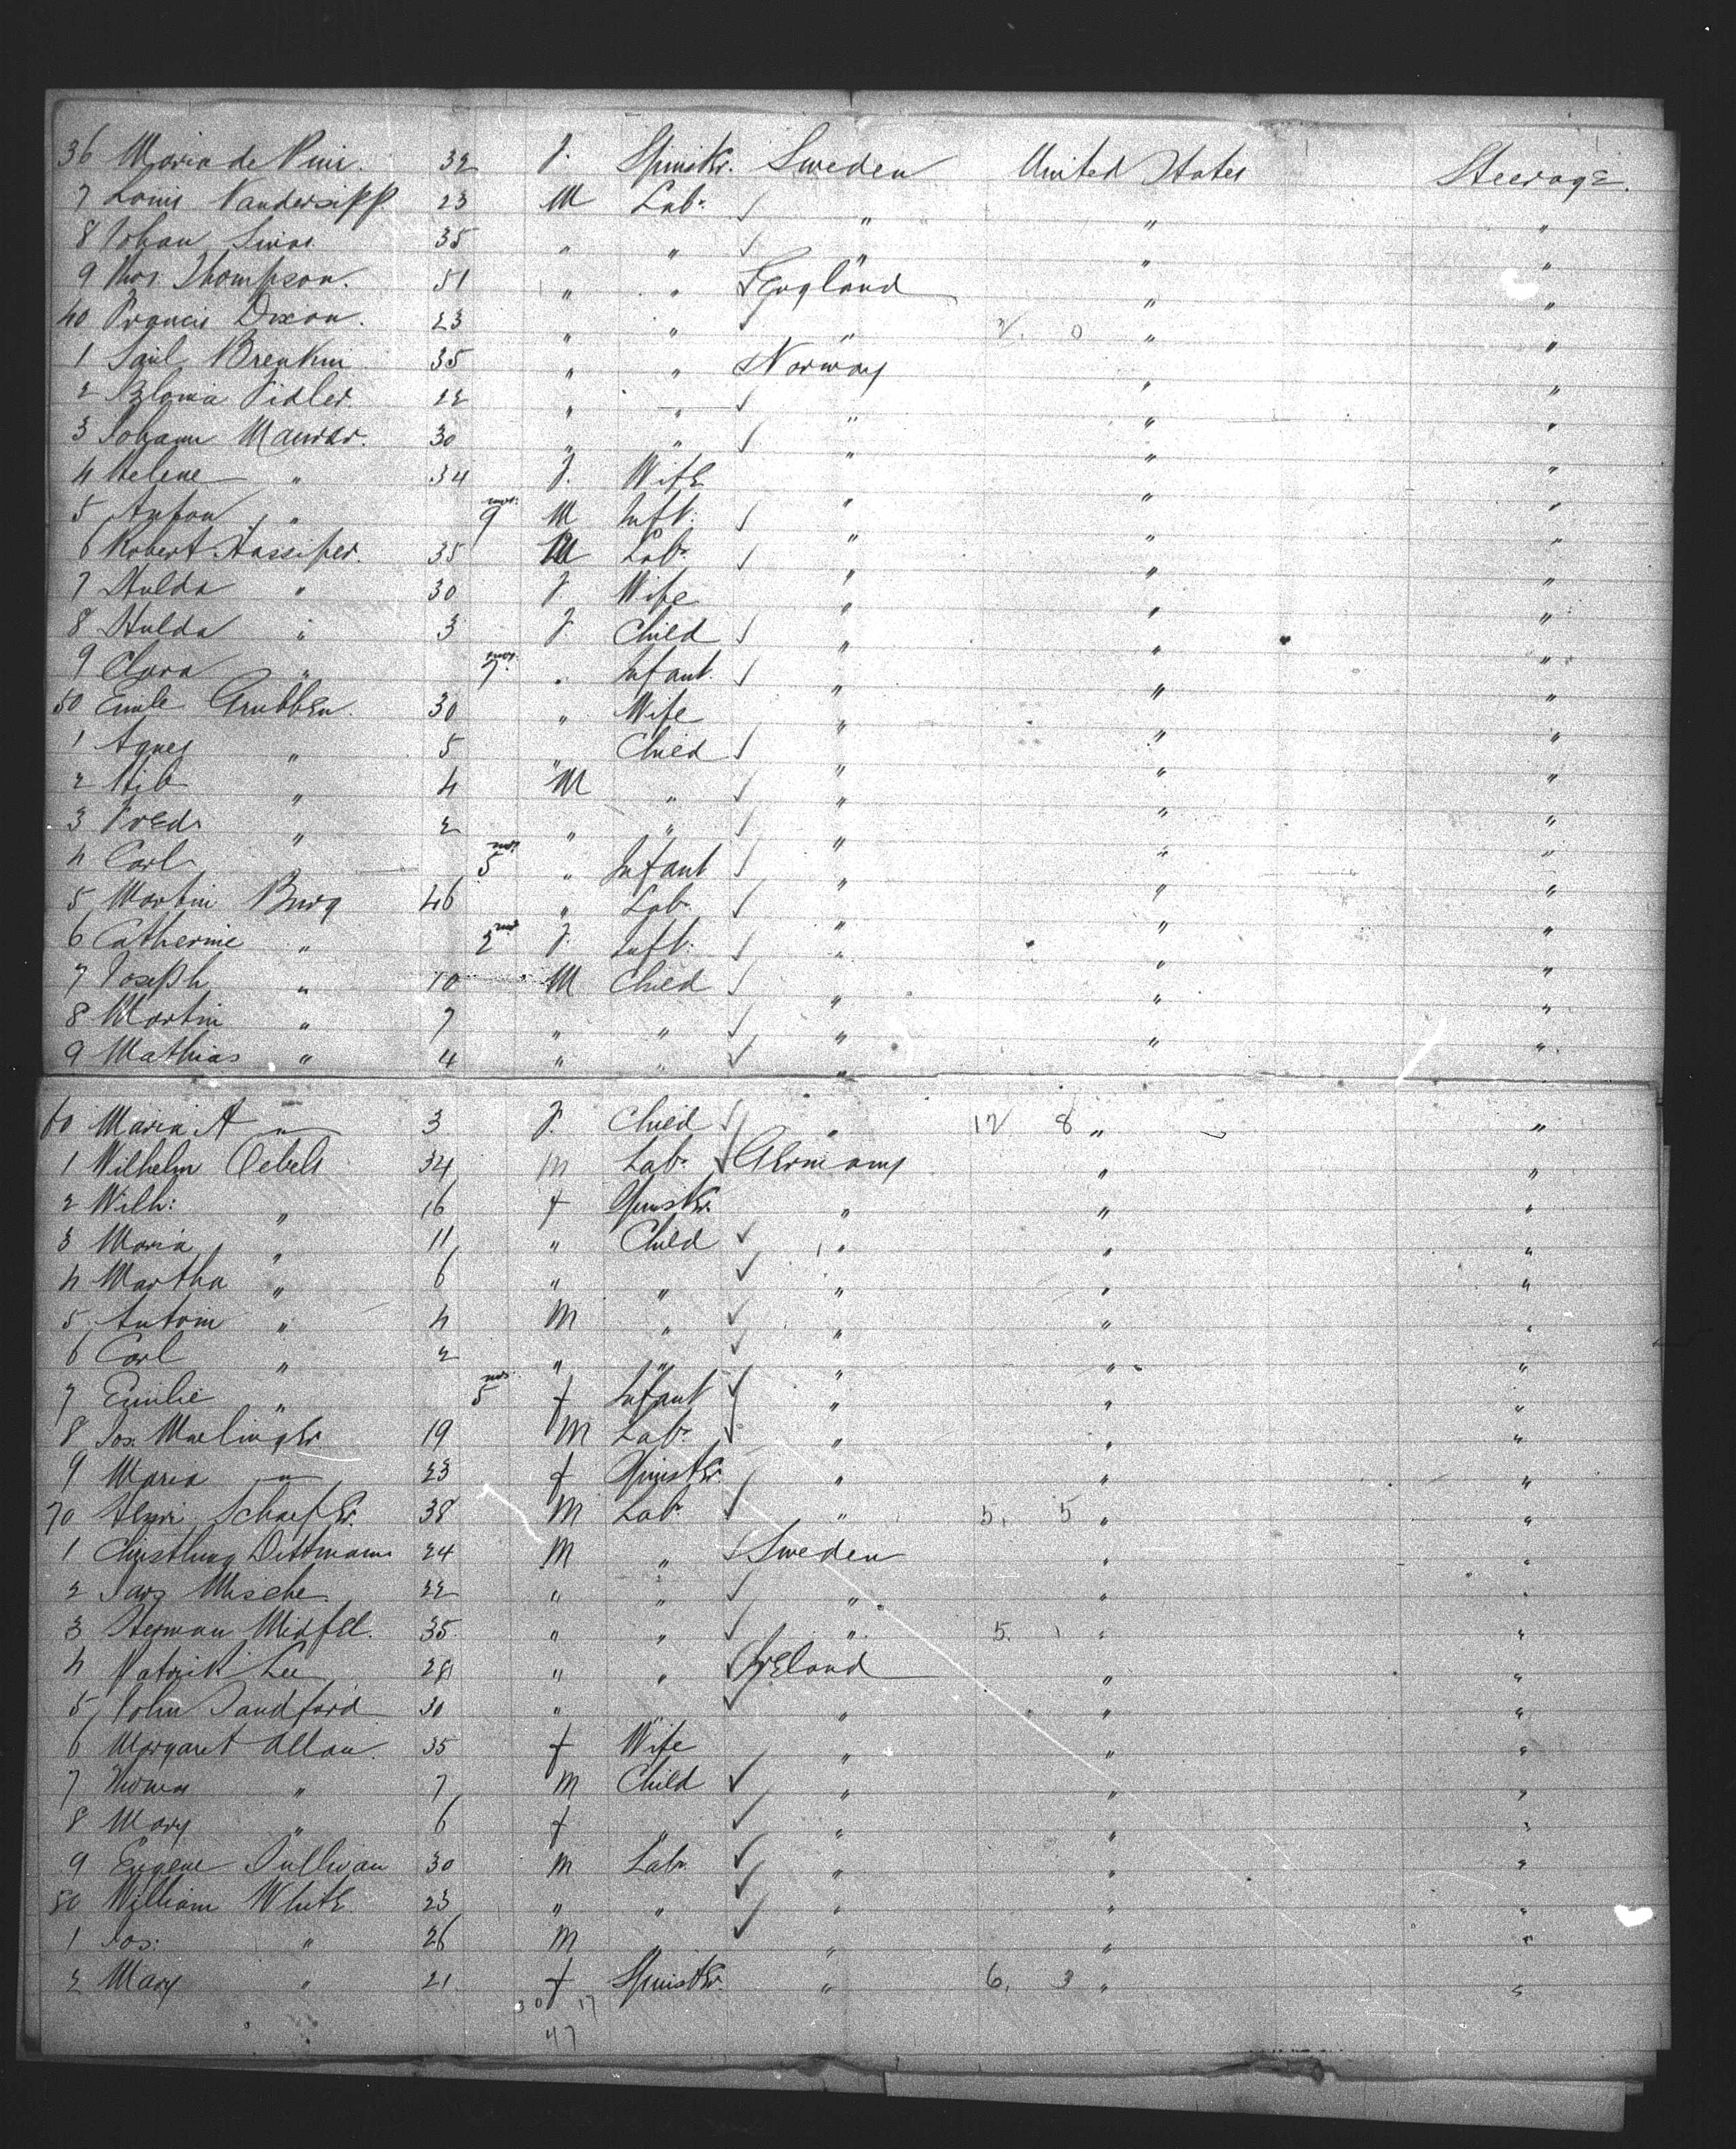 36 Maria de Pini. 32 f. Spinstr. Sweden United States Steerage.
7 Louis Vandersipp 23 M Lab. " " "
8 Johan 35 " " " " "
9 Thos. Thompson. 51 " " England " "
40 Francis Dixon. 23 " " " 2. 0 " "
1 35 " " Norway " "
2 Pidler. 22 " " " " "
3 Johann Maurer. 30 " " " " "
4 Helene " 34 f. Wife " " "
5 Anton " 9 mos. M Inft. " " "
6 Robert Hassiper. 35 M Lab. " " "
7 Hulda " 30 f. Wife " " "
8 Hulda " 3 f. Child " " "
9 Clara " 7 mos. " Infant. " " "
50 Emile Grubben. 30 " Wife " " "
1 Agnes " 5 " Child " " "
2 " 4 M " " " "
3 Fred. " 2 " " " " "
4 Carl 5 mos " Infant " " "
5 Martin Burg 46 " Lab. " " "
6 Catherine " 2 mos f. Inft. " " "
7 Joseph " 10 M Child " " "
8 Martin " 7 " " " " "
9 Mathias " 4 " " " " "
60 Maria A " 3 f. Child " 12 8 " "
1 Wilhelm Oebels 34 m Lab. Germany " "
2 Wilh: " 16 f Spinstr. " " "
3 Maria " 11 " Child " " "
4 Martha " 6 " " " " "
5 Antoin " 4 M " " " "
6 Carl " 2 " " " " "
7 Emilie " 5 mos. f Infant " " "
8 Jos. 19 M Lab. " " "
9 Maria " 23 f Spinster. " " "
70 Henri Schaefer. 38 M Lab. " 5. 5 " "
1 Dittmann 24 M " Sweden " "
2 22 " " " " "
3 Herman 35 " " " 5. 1 " "
4 Patrick Lee 28 " " Ireland " "
5 John Sandford 30 " " " " "
6 Margaret Allan. 35 f Wife " " "
7 Thomas " 7 M Child " " "
8 Mary " 6 f " " " "
9 Eugene Sullivan 30 m Lab. " " "
80 William White. 23 " " " " "
1 Jos: " 26 M " " " "
2 Mary " 21. f Spinster. " 6. 3 " "
30 17
47